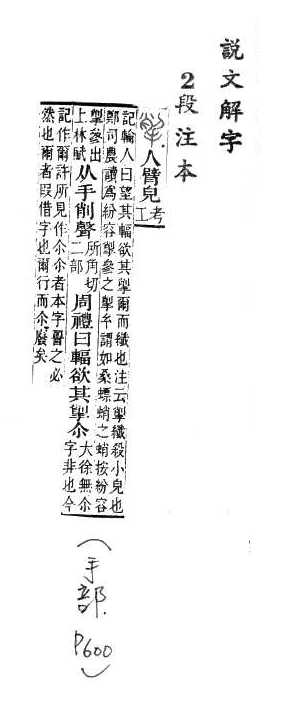 說文解字
2段注本
人臂皃 考工
記輪人曰望其輻欲其揱爾而纖也注云揱纖殺小皃也
鄭司農讀爲紛容揱參之揱玄謂如桑螵蛸之蛸按紛容
揱參出上林賦 从手削聲 所角切二部 周禮曰輻欲其揱尒 大徐無尒字非也今
記作爾許所見作尒尒者本字䛐之必
然也爾者叚借字也爾行而尒廢矣
(手部. P600)